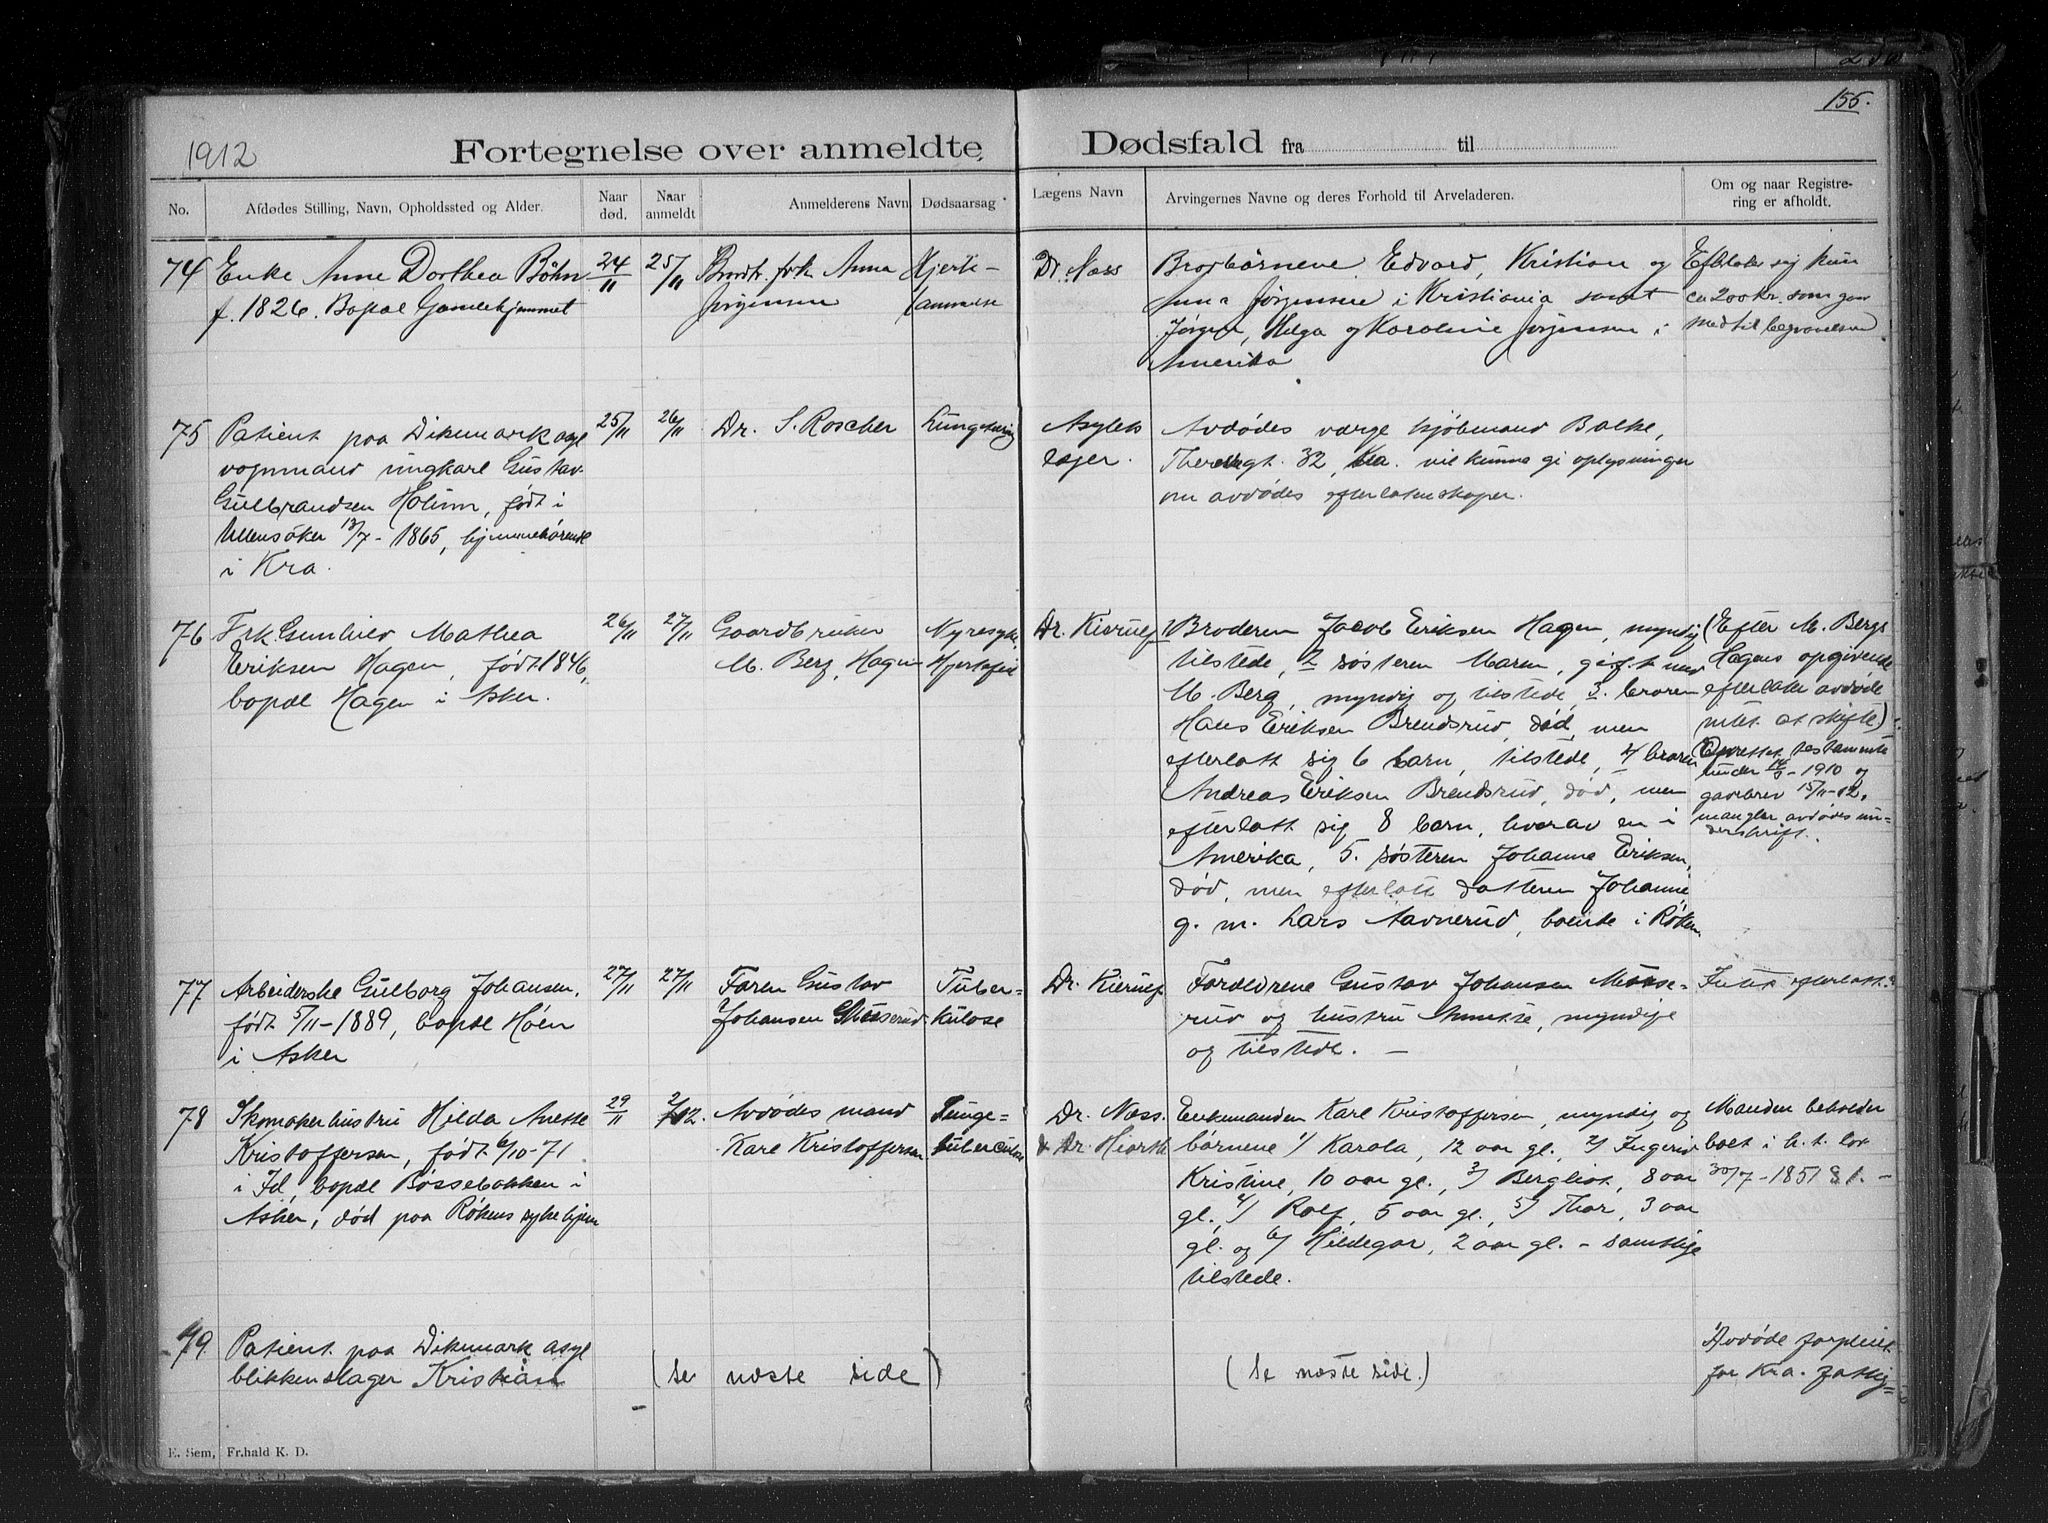 155.
1912
Fortegnelse over anmeldte Dødsfald fra til
No.
Afdødes Stilling, Navn, Opholdssted og Alder.
Naar død.
Naar anmeldt
Anmelderens Navn
Dødsaarsag
Lægens Navn
Arvingernes Navne og deres Forhold til Arveladeren.
Om og naar Registre-
ring er afholdt.
74
Enke Anne Dorthea Böhn
f. 1826. Bopæl Gamlehjemmet
24/11
25/11
frk. Anna
Jörgensen
Hjerte-
lammelse
Dr. Næss
Brorbörnene Edvard, Kristian og
Anna Jörgensen i Kristiania samt
Jörgen, Helga og Karoline Jörgensen i
Amerika
Efterlot sig kun
ca 200 Kr. som gaar
med til begravelsen
75
Patient paa Dikemark asyl
vognmand ungkarl Gustav
Gulbrandsen Holum, født i
Ullensöker 13/7-1865, hjemmehörende
i Kra.
25/11
26/11
Dr. S. Roscher
Asylets
læger.
Avdödes værge kjöbmand Balke,
Theresesgt. 32, Kra. vil kunne gi oplysninger
om avdödes efterlatenskaper.
76
Frk. Gunhild Mathea
Eriksen Hagen, født 1846,
bopæl Hagen i Asker.
26/11
27/11
Gaardbruker
M. Berg, Hagen
Nyresyke,
Hjertefeil
Dr. Kierulf
1 Broderen Jacob Eriksen Hagen, myndig
tilstede, 2 søsteren Maren, gift med
M. Berg, myndig og tilstede, 3. broren
Hans Eriksen Brendsrud, død, men
efterlatt sig 6 barn, tilstede, 4/ broren
Andreas Eriksen Brendsrud, død, men
efterlatt sig 8 barn, hvorav en i
Amerika, 5. søsteren Johanne Eriksen,
død, men efterlatt datteren Johanne
g. m. Lars Aavnerud, boende i Röken
(Efter M. Bergs
Hagens opgivende
efterlater avdøde
intet at skifte).
Oprettet testamente
under 14/5-1910 og
gavebrev 15/11-12,
mangler avdødes un-
derskrift.
77
Arbeiderske Gulborg Johansen,
født 5/11-1889, bopæl Høn
i Asker
27/11
27/11
Faren Gustav
Johansen
Tuber-
kulose
Dr. Kierulf
Forældrene Gustav Johansen Musse-
rud og hustru Annette, myndige
og tilstede. -
Intet efterlatt
78
Skomakerhustru Hilda Anette
Kristoffersen, født 6/10-71
i Id, bopæl Bössebakken i
Asker, död paa Røkens sykehjem
29/11
2/12.
Avdødes mand
Karl Kristoffersen
Lunge-
tuberculose
Dr. Næss.
& Dr. Hiorth
Enkemanden Karl Kristoffersen, myndig og
børnene 1/ Karola, 12 aar gl., 2/ Ingerid
Kristine, 10 aar gl., 3/ Bergliot, 8 aar
gl., 4/ Rolf, 5 aar gl., 5/ Thor, 3 aar
gl. og 6/ Hildegar, 2 aar gl. - samtlige
tilstede.
Manden beholder
boet i h. t. lov
30/7-1851 § 1. -
79
Patient paa Dikemark asyl
blikkenslager Kristian
(se næste side)
(se næste side.)
Avdøde forpleiet
for Kra. fattig=
E. Sem, Fr.hald K. D.